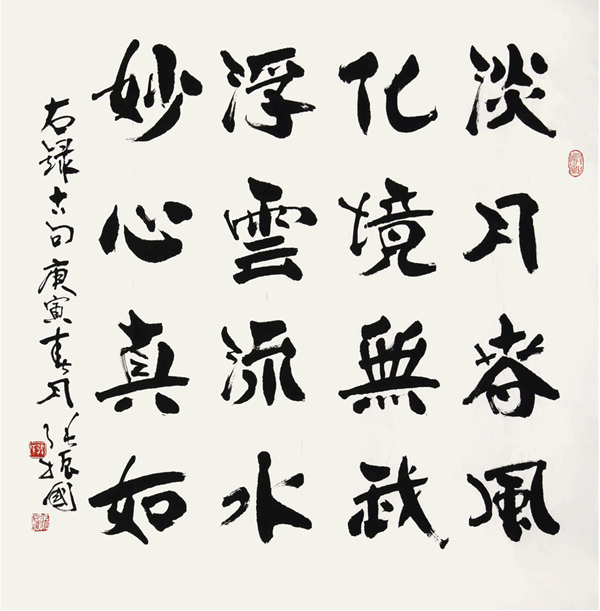 淡月春風
化境無我
浮雲流水
妙心真如
右録古句庚寅春月張振國